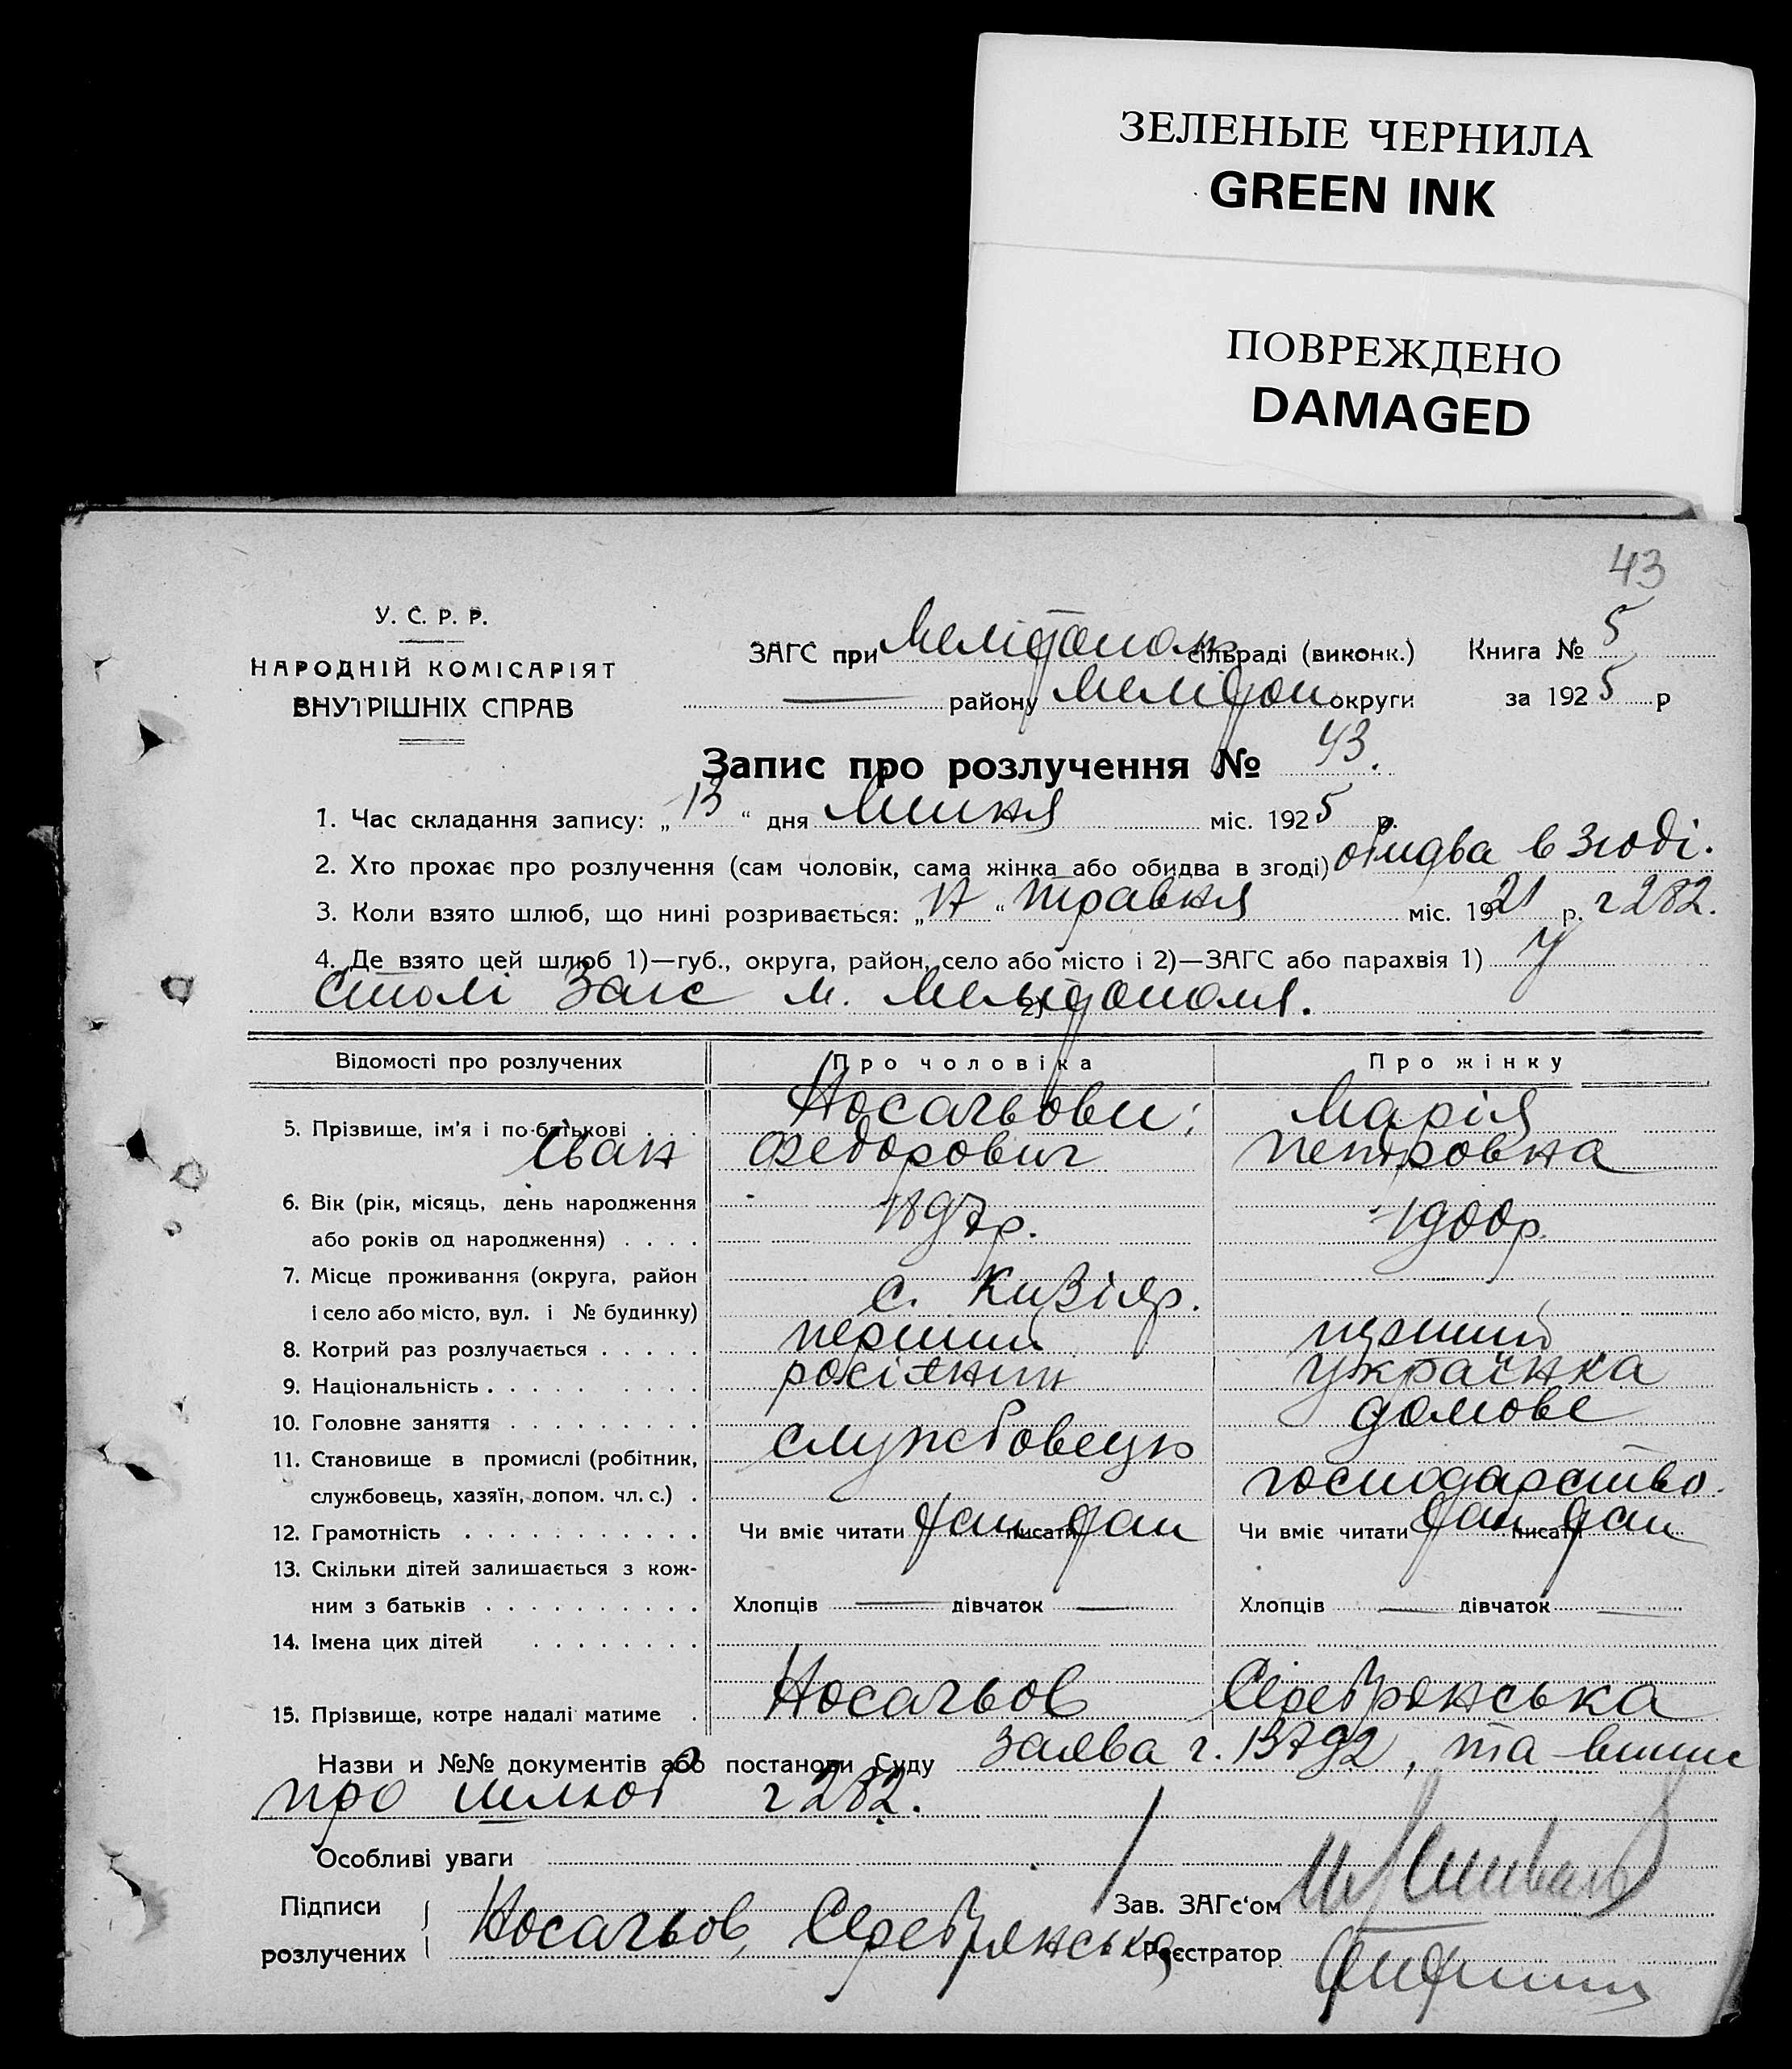 ЗЕЛЕНЫЕ ЧЕРНИЛА
GREEN INK
ПОВРЕЖДЕНО
DAMAGED
43
У. С. Р. Р.
НАРОДНІЙ КОМІСАРІЯТ
ВНУТРІШНІХ СПРАВ
ЗАГС при Мелітополь сільраді (виконк.) Книга № 5
— району Мелітоп округи за 1925 р
Запис про розлучення № 43.
1. Час складання запису: „13“ дня Липня міс. 1925 р.
2. Хто прохає про розлучення (сам чоловік, сама жінка або обидва в згоді) обидва в згоді.
3. Коли взято шлюб, що нині розривається: „17“ травня міс. 1921 р. ч 282.
4. Де взято цей шлюб 1)—губ., округа, район, село або місто і 2)—ЗАГС або парахвія 1) у
столі Загс м. Мелітополя. 2)
Відомості про розлучених Про чоловіка Про жінку
5. Прізвище, ім'я і по-батькові Носачьови; Марія
Іван Федорович Петровна
6. Вік (рік, місяць, день народження
або років од народження) . . . . 1897р. 1900р.
7. Місце проживання (округа, район
і село або місто, вул. і № будинку) с. Кизіяр.
8. Котрий раз розлучається . . . . . перший перший
9. Національність . . . . . . . . росіянин українка
10. Головне заняття . . . . . . . . . домове
11. Становище в промислі (робітник, службовець
службовець, хазяїн, допом. чл. с.) . господарство.
12. Грамотність . . . . . . . . . . . Чи вміє читати так писати так Чи вміє читати так писати так
13. Скільки дітей залишається з кож-
ним з батьків . . . . . . . . . . Хлопців — дівчаток — Хлопців — дівчаток —
14. Імена цих дітей . . . . . . . .
15. Прізвище, котре надалі матиме . Носачьов Серебрянська
Назви и №№ документів або постанови Суду заява ч. 13792, та випис
про шлюб ч 282.
Особливі уваги
Підписи Зав. ЗАГс'ом
розлучених Носачьов, Серебрянська Реєстратор